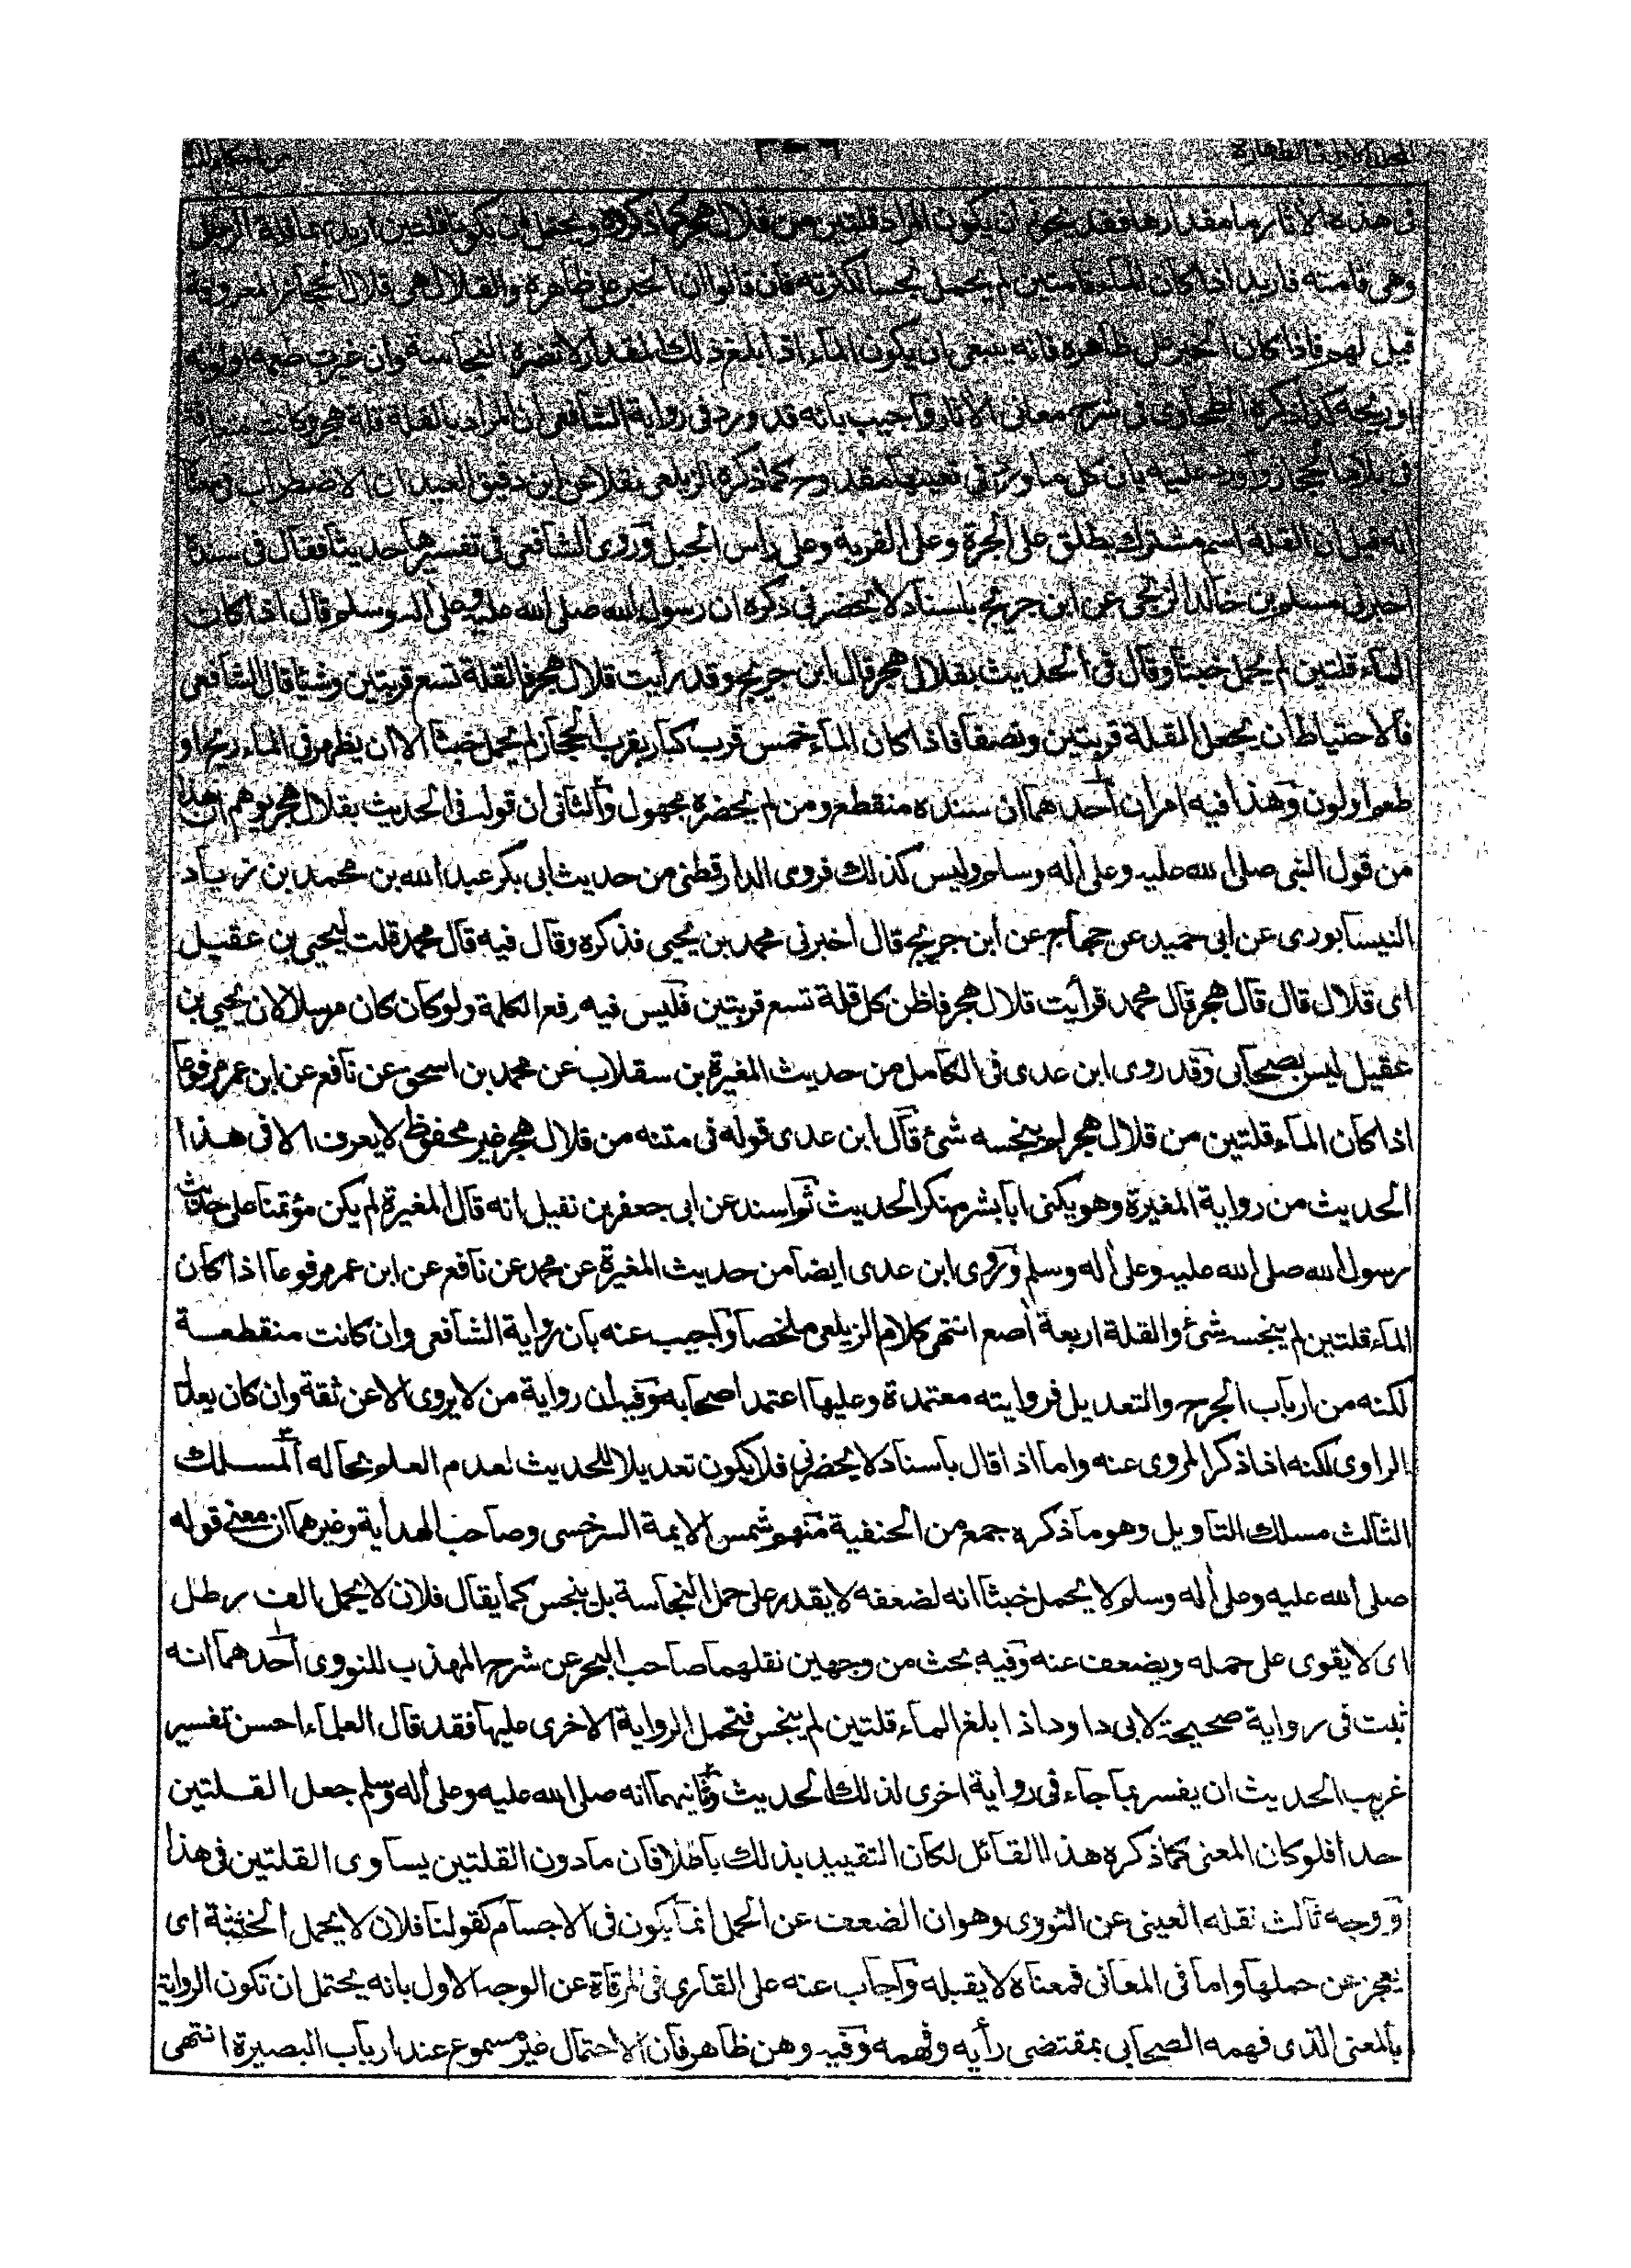 في هذه الأثار ما مقدارها فقد يجوز ان يكون المراد قلتين من قلال هجر كما ذكرتم ويحتمل ان تكونا قلتين اريد بهما قلة الرجل
وهي قامته فاريد اذا كان الماء قامتين لم يحمل نجسا لكثرته فان قالوا ان الخبر على ظاهره والقلال هي قلال الحجاز المعروفة
قيل لهم فاذا كان الخبر على ظاهره فانه ينبغي ان يكون الماء اذا بلغ ذلك المقدار لا تضره النجاسة وان غيرت طعمه او لونه
او ريحه كذا ذكره الطحاوي في شرح معاني الآثار واجيب بانه قد ورد في رواية الشافعي ان المراد بالقلة قلة هجر وكانت
في بلاد الحجاز واورد عليه بان كل ما ورد في تعيينها مقدوح كما ذكره الزيلعي نقلا عن ابن دقيق العيد ان الاضطراب في معناه
انه قيل ان القلة اسم مشترك يطلق على الجرة وعلى القربة وعلى رأس الجبل وروى الشافعي في تفسيرها حديثا فقال في سنده
اخبرني مسلم بن خالد الزنجي عن ابن جريج باسناد لا يحضرني ذكره ان رسول الله صلى الله عليه وعلى اله وسلم قال اذا كان
الماء قلتين لم يحمل خبثا وقال في الحديث بقلال هجر قال ابن جريج وقد رأيت قلال هجر فالقلة تسع قربتين وشيئا قال الشافعي
فالاحتياط ان يجعل القلة قربتين ونصفا فاذا كان الماء خمس قرب كبار بقرب الحجاز لم يحمل خبثا الا ان يظهر في الماء ريح او
طعم او لون وهذا فيه امران احدهما ان سنده منقطع ومن لم يحضره مجهول والثاني ان قوله في الحديث بقلال هجر يوهم ان هذا
من قول النبي صلى الله عليه وعلى اله وسلم وليس كذلك فروى الدارقطني من حديث ابي بكر عبد الله بن محمد بن زياد
النيسابوري عن ابي حميد عن حجاج عن ابن جريج قال اخبرني محمد بن يحيى فذكره وقال فيه قال محمد قلت ليحيى بن عقيل
اي قلال قال قال هجر قال محمد فرأيت قلال هجر فاظن كل قلة تسع قربتين فليس فيه رفع الكلمة ولو كان كان مرسلا لان يحيى بن
عقيل ليس بصحابي وقد روى ابن عدي في الكامل من حديث المغيرة بن سقلاب عن محمد بن اسحق عن نافع عن ابن عمر مرفوعا
اذا كان الماء قلتين من قلال هجر لم ينجسه شئ قال ابن عدي قوله في متنه من قلال هجر غير محفوظ لا يعرف الا في هذا
الحديث من رواية المغيرة وهو يكنى ابا بشر منكر الحديث ثم اسند عن ابي جعفر بن نفيل انه قال المغيرة لم يكن مؤتمنا على حديث
رسول الله صلى الله عليه وعلى اله وسلم وروى ابن عدي ايضا من حديث المغيرة عن محمد عن نافع عن ابن عمر مرفوعا اذا كان
الماء قلتين لم ينجسه شئ والقلة اربعة أصع انتهى كلام الزيلعي ملخصا واجيب عنه بان رواية الشافعي وان كانت منقطعة
لكنه من ارباب الجرح والتعديل فروايته معتمدة وعليها اعتمد اصحابه وفيه ان رواية من لا يروى الا عن ثقة وان كان يعدل
الراوي لكنه اذا ذكر المروى عنه واما اذا قال باسناد لا يحضرني فلا يكون تعديلا للحديث لعدم العلم بحاله المسلك
الثالث مسلك التاويل وهو ما ذكره جمع من الحنفية منهم شمس الايمة السرخسي وصاحب الهداية وغيرهما ان معنى قوله
صلى الله عليه وعلى اله وسلم لا يحمل خبثا انه لضعفه لا يقدر على حمل النجاسة بل ينجس كما يقال فلان لا يحمل الف رطل
اى لا يقوى على حمله ويضعف عنه وفيه بحث من وجهين نقلهما صاحب البحر عن شرح المهذب للنووي احدهما انه
ثبت في رواية صحيحة لابي داود اذا بلغ الماء قلتين لم ينجس فتحمل الرواية الاخرى عليها فقد قال العلماء احسن تفسير
غريب الحديث ان يفسر بما جاء في رواية اخرى لذلك الحديث وثانيهما انه صلى الله عليه وعلى اله وسلم جعل القلتين
حدا فلو كان المعنى كما ذكره هذا القائل لكان التقييد بذلك باطلا فان ما دون القلتين يساوى القلتين في هذا
ووجه ثالث نقله العيني عن النووي وهو ان الضعف عن الحمل انما يكون في الاجسام كقولنا فلان لا يحمل الخشبة اى
يعجز عن حملها واما في المعاني فمعناه لا يقبله واجاب عنه على القاري في المرقاة عن الوجه الاول بانه يحتمل ان تكون الرواية
بالمعنى الذي فهمه الصحابي بمقتضى رأيه وفهمه وفيه وهن ظاهر فان الاحتمال غير مسموع عند ارباب البصيرة انتهى